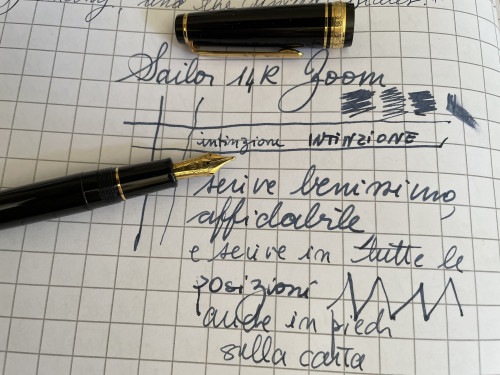 and the
Sailor 14K Zoom
intinzione INTINZIONE
scrive benissimo,
affidabile
e scrive in tutte le
posizioni
anche in piedi
sulla carta